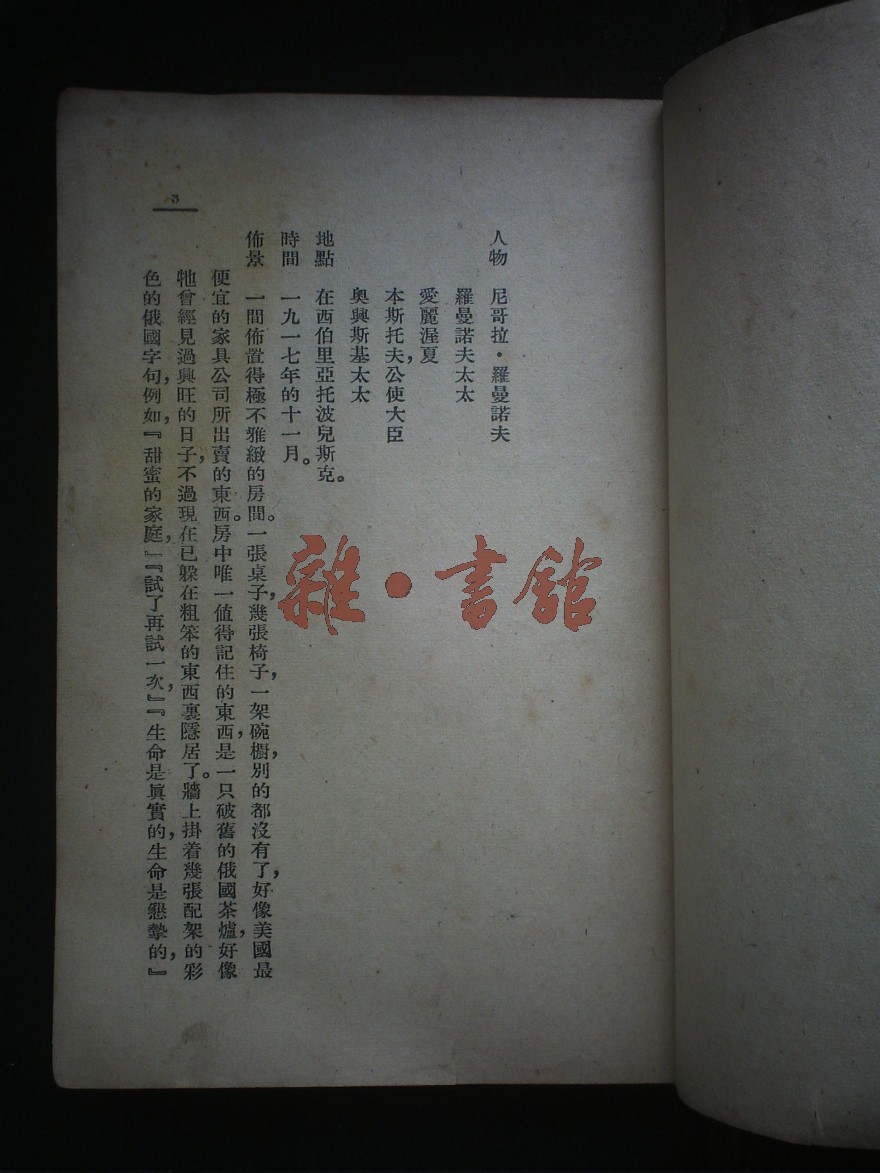 人物　尼哥拉・羅曼諾夫
羅曼諾夫太太
愛麗渥夏
本斯托夫，公使大臣
奧興斯基太太
地點　在西伯里亞托波兒斯克。
時間　一九一七年的十一月。
佈景　一間佈置得極不雅緻的房間。一張桌子，幾張椅子，一架碗櫥，別的都沒有了，好像美國最
便宜的家具公司所出賣的東西。房中唯一値得記住的東西，是一只破舊的俄國茶爐，好像
牠曾經見過興旺的日子，不過現在已躲在粗笨的東西裏隱居了。牆上掛着幾張配架的彩
色的俄國字句，例如，『甜蜜的家庭，』『試了再試一次，』『生命是眞實的，生命是懇摯的，』
3
雜・書館